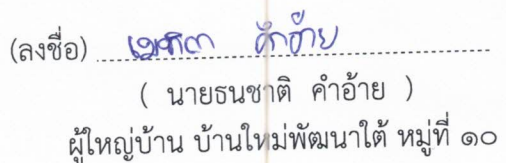 (ลงชื่อ)
( นายธนชาติ คำอ้าย )
ผู้ใหญ่บ้าน บ้านใหม่พัฒนาใต้ หมู่ที่ ๑๐